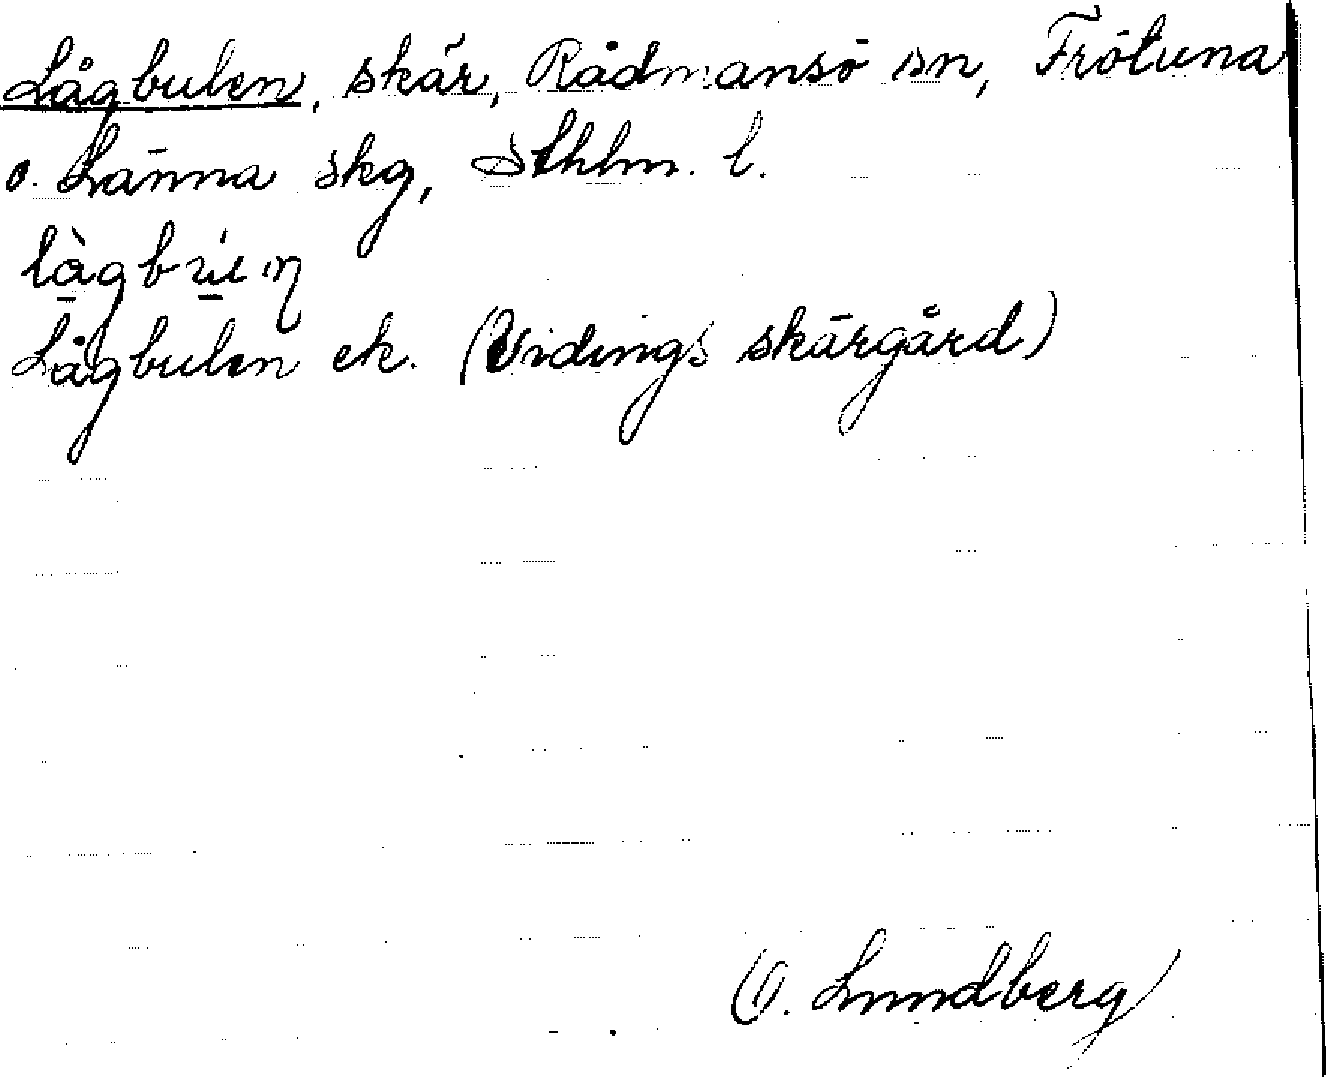 Lågbulen, skär, Rådmansö sn, Frötuna
o. Länna skg, Sthlm. l.
Lågbulen ek. (Vidings skärgård)
O. Lundberg